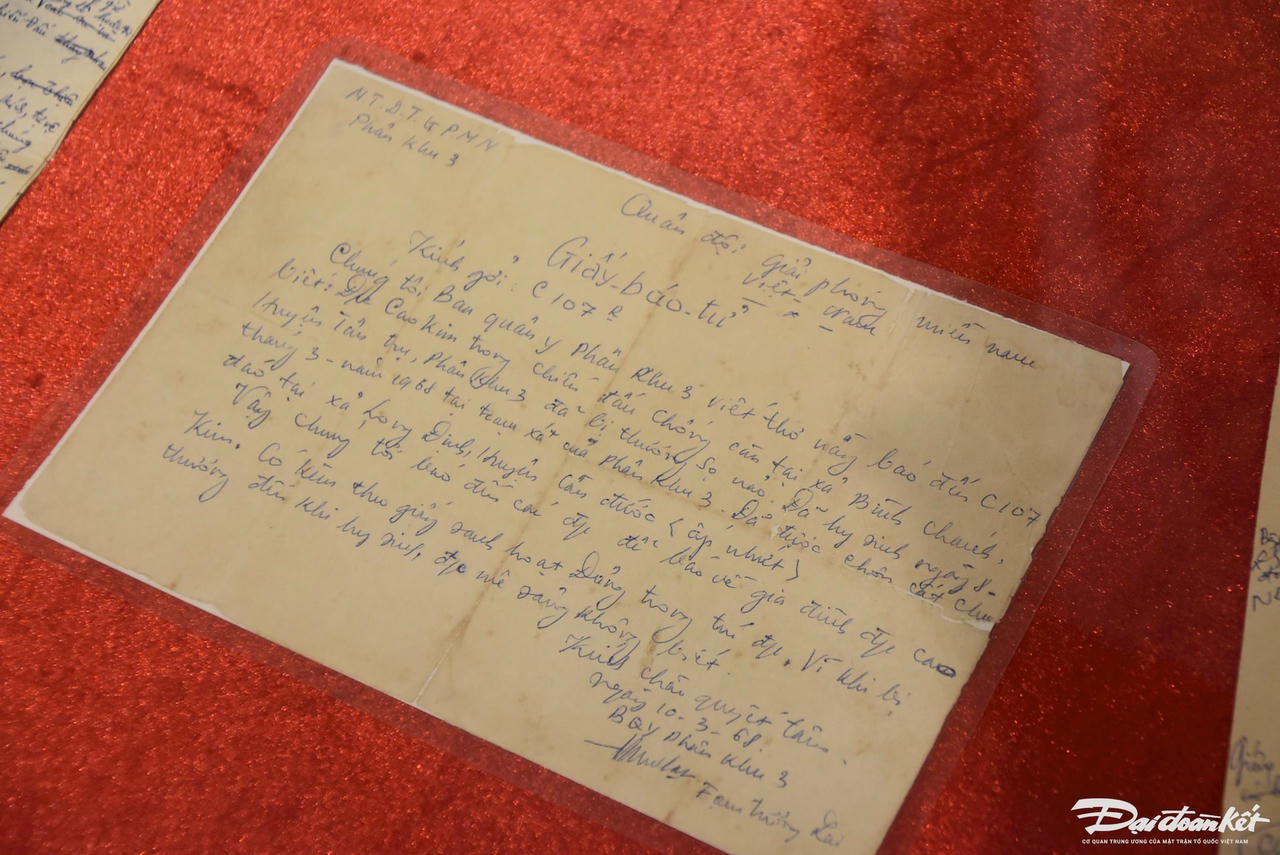 M.T.D.T.G.P.M.N
Phân Khu 3
Quân đội giải phóng miền nam
Việt-Nam
Giấy-báo-tử
Kính gởi: C107
Chúng tôi Ban quân y Phân Khu 3 viết thơ nầy báo đến C107
biết: Đ/c Cao Kim trong chiến đấu chống càn tại xã Bình Chánh,
Huyện Tân trụ, Phân Khu 3 đã bị thương sọ não. Đã hy sinh ngày 8-
tháng 3-năm 1968 tại trạm xá của Phân Khu 3. Đã được chôn cất chu
đáo tại xã Long Định, Huyện Cần đước (ấp nhứt)
Vậy chúng tôi báo đến các đ/c để báo về gia đình đ/c Cao
Kim. Có kèm theo giấy sanh hoạt Đảng trong túi đ/c. Vì khi bị
thương đến khi hy sinh, đ/c mê sảng không biết.
Kính chào quyết tâm
ngày 10-3-68
BQY Phân Khu 3
Đại đoàn kết
CƠ QUAN TRUNG ƯƠNG CỦA MẶT TRẬN TỔ QUỐC VIỆT NAM